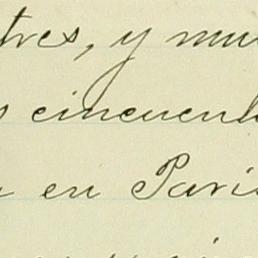 tres, y mu
s cincuent
en Paris